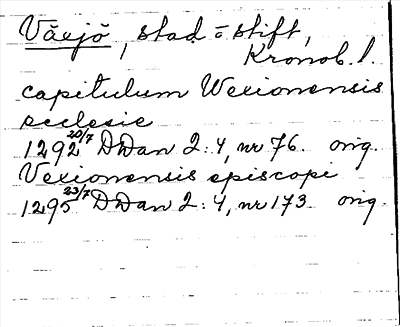 Växjö, stad = stift,
Kronob. l.
capitulum Wexionensis
ecclesie
1292 20/7 DDan 2:4, nr 76. orig.
Vexionensis episcopi
1295 23/7 DDan 2:4, nr 173. orig.